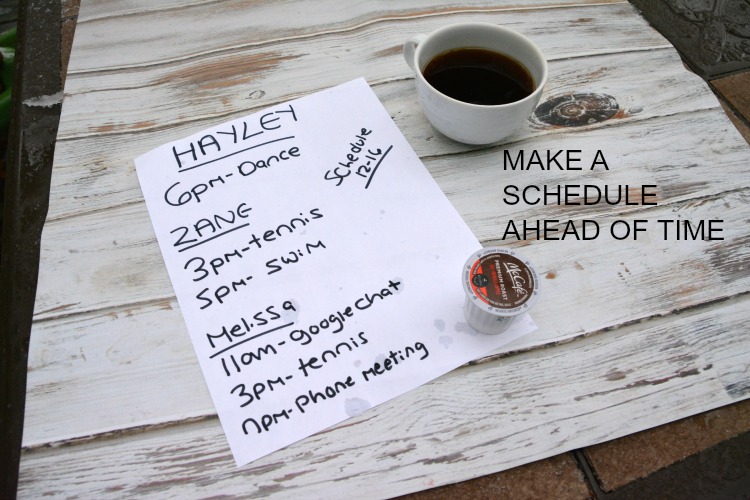 HAYLEY
6pm-Dance
Schedule
12-16
ZANE
3pm-tennis
5pm- swim
Melissa
11am-google chat
3pm-tennis
7pm-phone meeting
MAKE A
SCHEDULE
AHEAD OF TIME
McCafé
PREMIUM ROAST